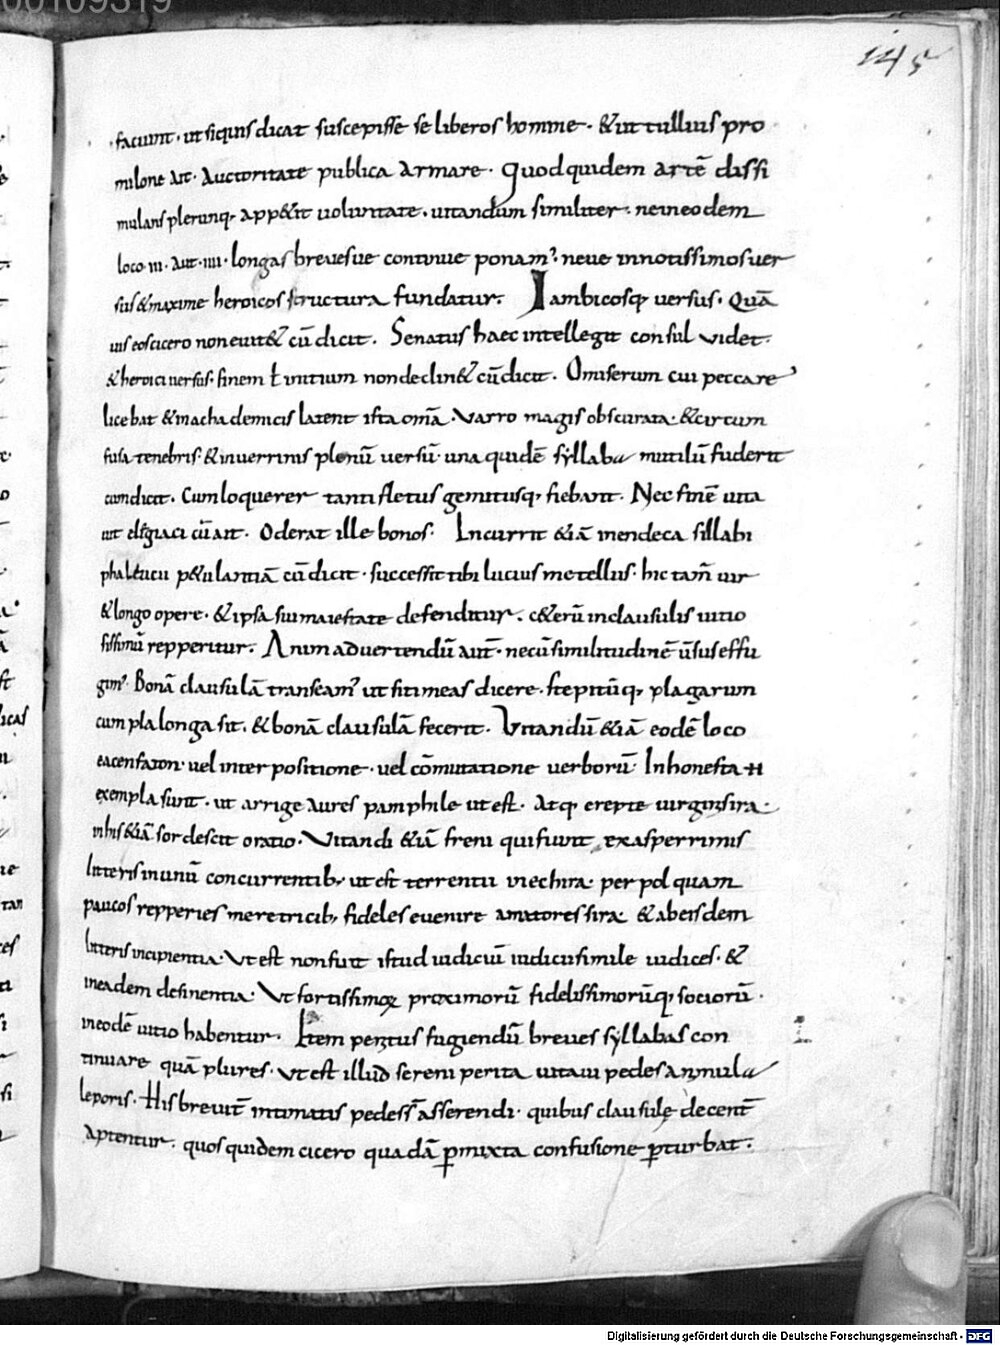 00109319
145
faciunt · ut siquis dicat suscepisse se liberos homine · & ut tullius pro
milone ait · Auctoritate publica armare · Quod quidem artē dissi
mulans plerunq; app&it uoluntate · uitandum similiter · ne in eodem
loco · iii · aut · iiii · longas breues ue continue ponam; neue in notissimos uer
sus & maxime heroicos structura fundatur. Iambicosq; uersus · Quā
uis eos cicero non euit& cū dicit. Senatus haec intellegit consul videt.
& heroici uersus · finem ł initium non declin& cū dicit. O miserum cui peccare
licebat & in achademicis latent ista omā · Varro magis obscurata · & circum
fusa tenebris · & in uerrinis plenū uersū · una quidē syllaba mutilū fuderit
cum dicit · Cum loquerer tanti fletus gemitusq; fiebant. Nec finē uita
uit elegiaci cū ait. Oderat ille bonos · Incurrit &iā in endeca sillabi
phaleucii p&ulantiā cū dicit · successit tibi lucius metellus · hic tam̄ uir
& longo opere · & ipsa sui maiestate defenditur. c&erū in clausulis uitio
sissimū repperitur. Animaduertendū aut̄ · ne cū similitudinē ūsus effu
gim; Bonā clausulā transeam; ut si timeas dicere · strepitūq; plagarum
cum pla longa sit. & bonā clausulā fecerit. Vitandū &iā eodē loco
eacenfaton · uel inter positione · uel cōmutatione uerborū. Inhonesta ·
exempla sunt · ut arrige aures pamphile ut est. Atq; erepte uirginis ira ·
in his &iā sordescit oratio. Vitandi &iā freni qui fiunt exasperrimis
litteris in unū concurrentib; ut est terrentii in echira · per pol quam
paucos repperies meretricib; fideles euenire amatores sira & ab eisdem
litteris incipientia · Vt est non fuit istud iudiciū iudicii simile iudices · &
in eadem definentia · Vt fortissimoꝝ proximorū fidelissimorūq; sociorū ·
in eodē uitio habentur. Item penitus fugiendū breues syllabas con
tinuare quā plures · ut est illud sereni perita uitaui pedes animula
leporis · His breuit̄ intimatis pedess̄ asserendi · quibus clausulę decent̄
aptentur. quos quidem cicero quadā ꝑmixta confusione ꝑturbat.
Digitalisierung gefördert durch die Deutsche Forschungsgemeinschaft - DFG